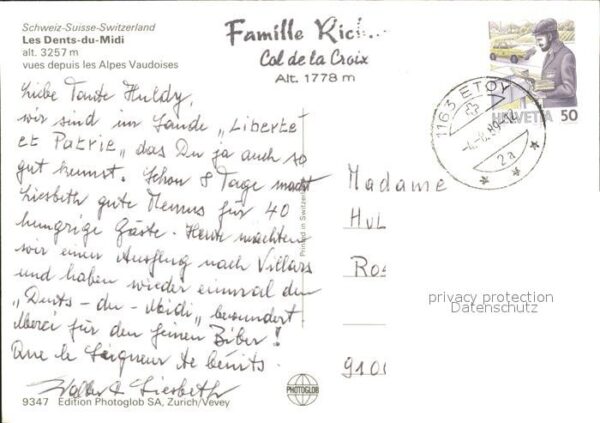 Schweiz-Suisse-Switzerland
Les Dents-du-Midi
alt. 3257 m
vues depuis les Alpes Vaudoises
Famille Rich
Col de la Croix
Alt. 1778 m
HELVETIA 50
1163 ETOY
2a
Liebe Tante Huldy,
wir sind im Lande „Liberté
et Patrie„ das Du ja auch so
gut kennst. Schon 8 Tage macht
Liesbeth gute Menus für 40
hungrige Gäste. Heute machten
wir einen Ausflug nach Villars
und haben wieder einmal den
„Dents-du-Midi„ bewundert
Merci für den feinen Biber!
Que le Seigneur te bénit.
Walter & Liesbeth
Printed in Switzerland
Madame
HUL
Ros
9100
privacy protection
Datenschutz
PHOTOGLOB
9347 Edition Photoglob SA, Zurich/Vevey